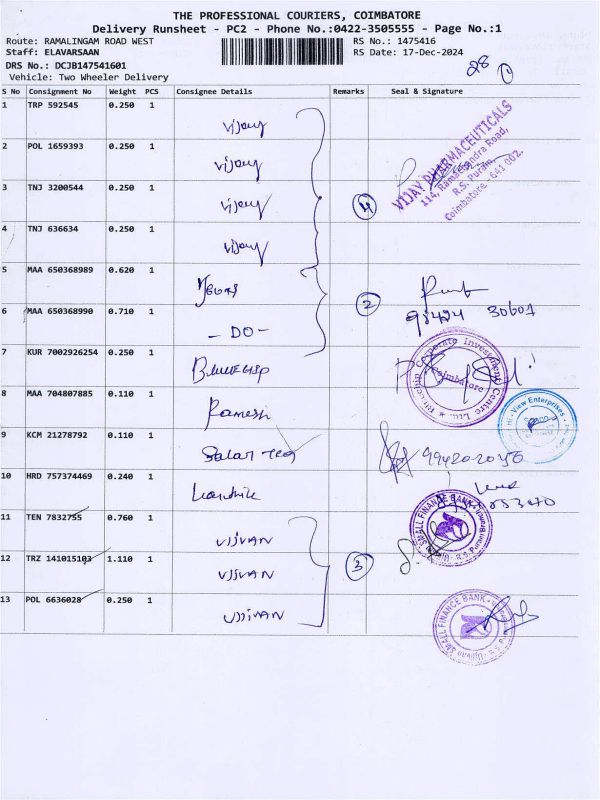 THE PROFESSIONAL COURIERS, COIMBATORE
Delivery Runsheet - PC2 - Phone No.:0422-3505555 - Page No.:1
Route: RAMALINGAM ROAD WEST RS No.: 1475416
Staff: ELAVARSAAN RS Date: 17-Dec-2024
DRS No.: DCJB147541601
28 1
Vehicle: Two Wheeler Delivery
S No Consignment No Weight PCS Consignee Details Remarks Seal & Signature
1 TRP 592545 0.250 1 Vijay
2 POL 1659393 0.250 1 Vijay
3 TNJ 3200544 0.250 1 Vijay
4
VIJAY PHARMACEUTICALS
114, Ramachandra Road,
R.S. Puram,
Coimbatore - 641 002.
4 TNJ 636634 0.250 1 Vijay
5 MAA 650368989 0.620 1
2
6 MAA 650368990 0.710 1 - DO -
98424 30601
7 KUR 7002926254 0.250 1
Corporate Investment Centre Ltd.
Coimbatore
8 MAA 704807885 0.110 1 Ramesh
Hi-View Enterprises
9 KCM 21278792 0.110 1
10 HRD 757374469 0.240 1
11 TEN 7832755 0.760 1 UJJIVAN
SMALL FINANCE BANK
R.S. Puram
12 TRZ 141015103 1.110 1 UJJIVAN
3
13 POL 6636028 0.250 1 UJJIVAN
SMALL FINANCE BANK